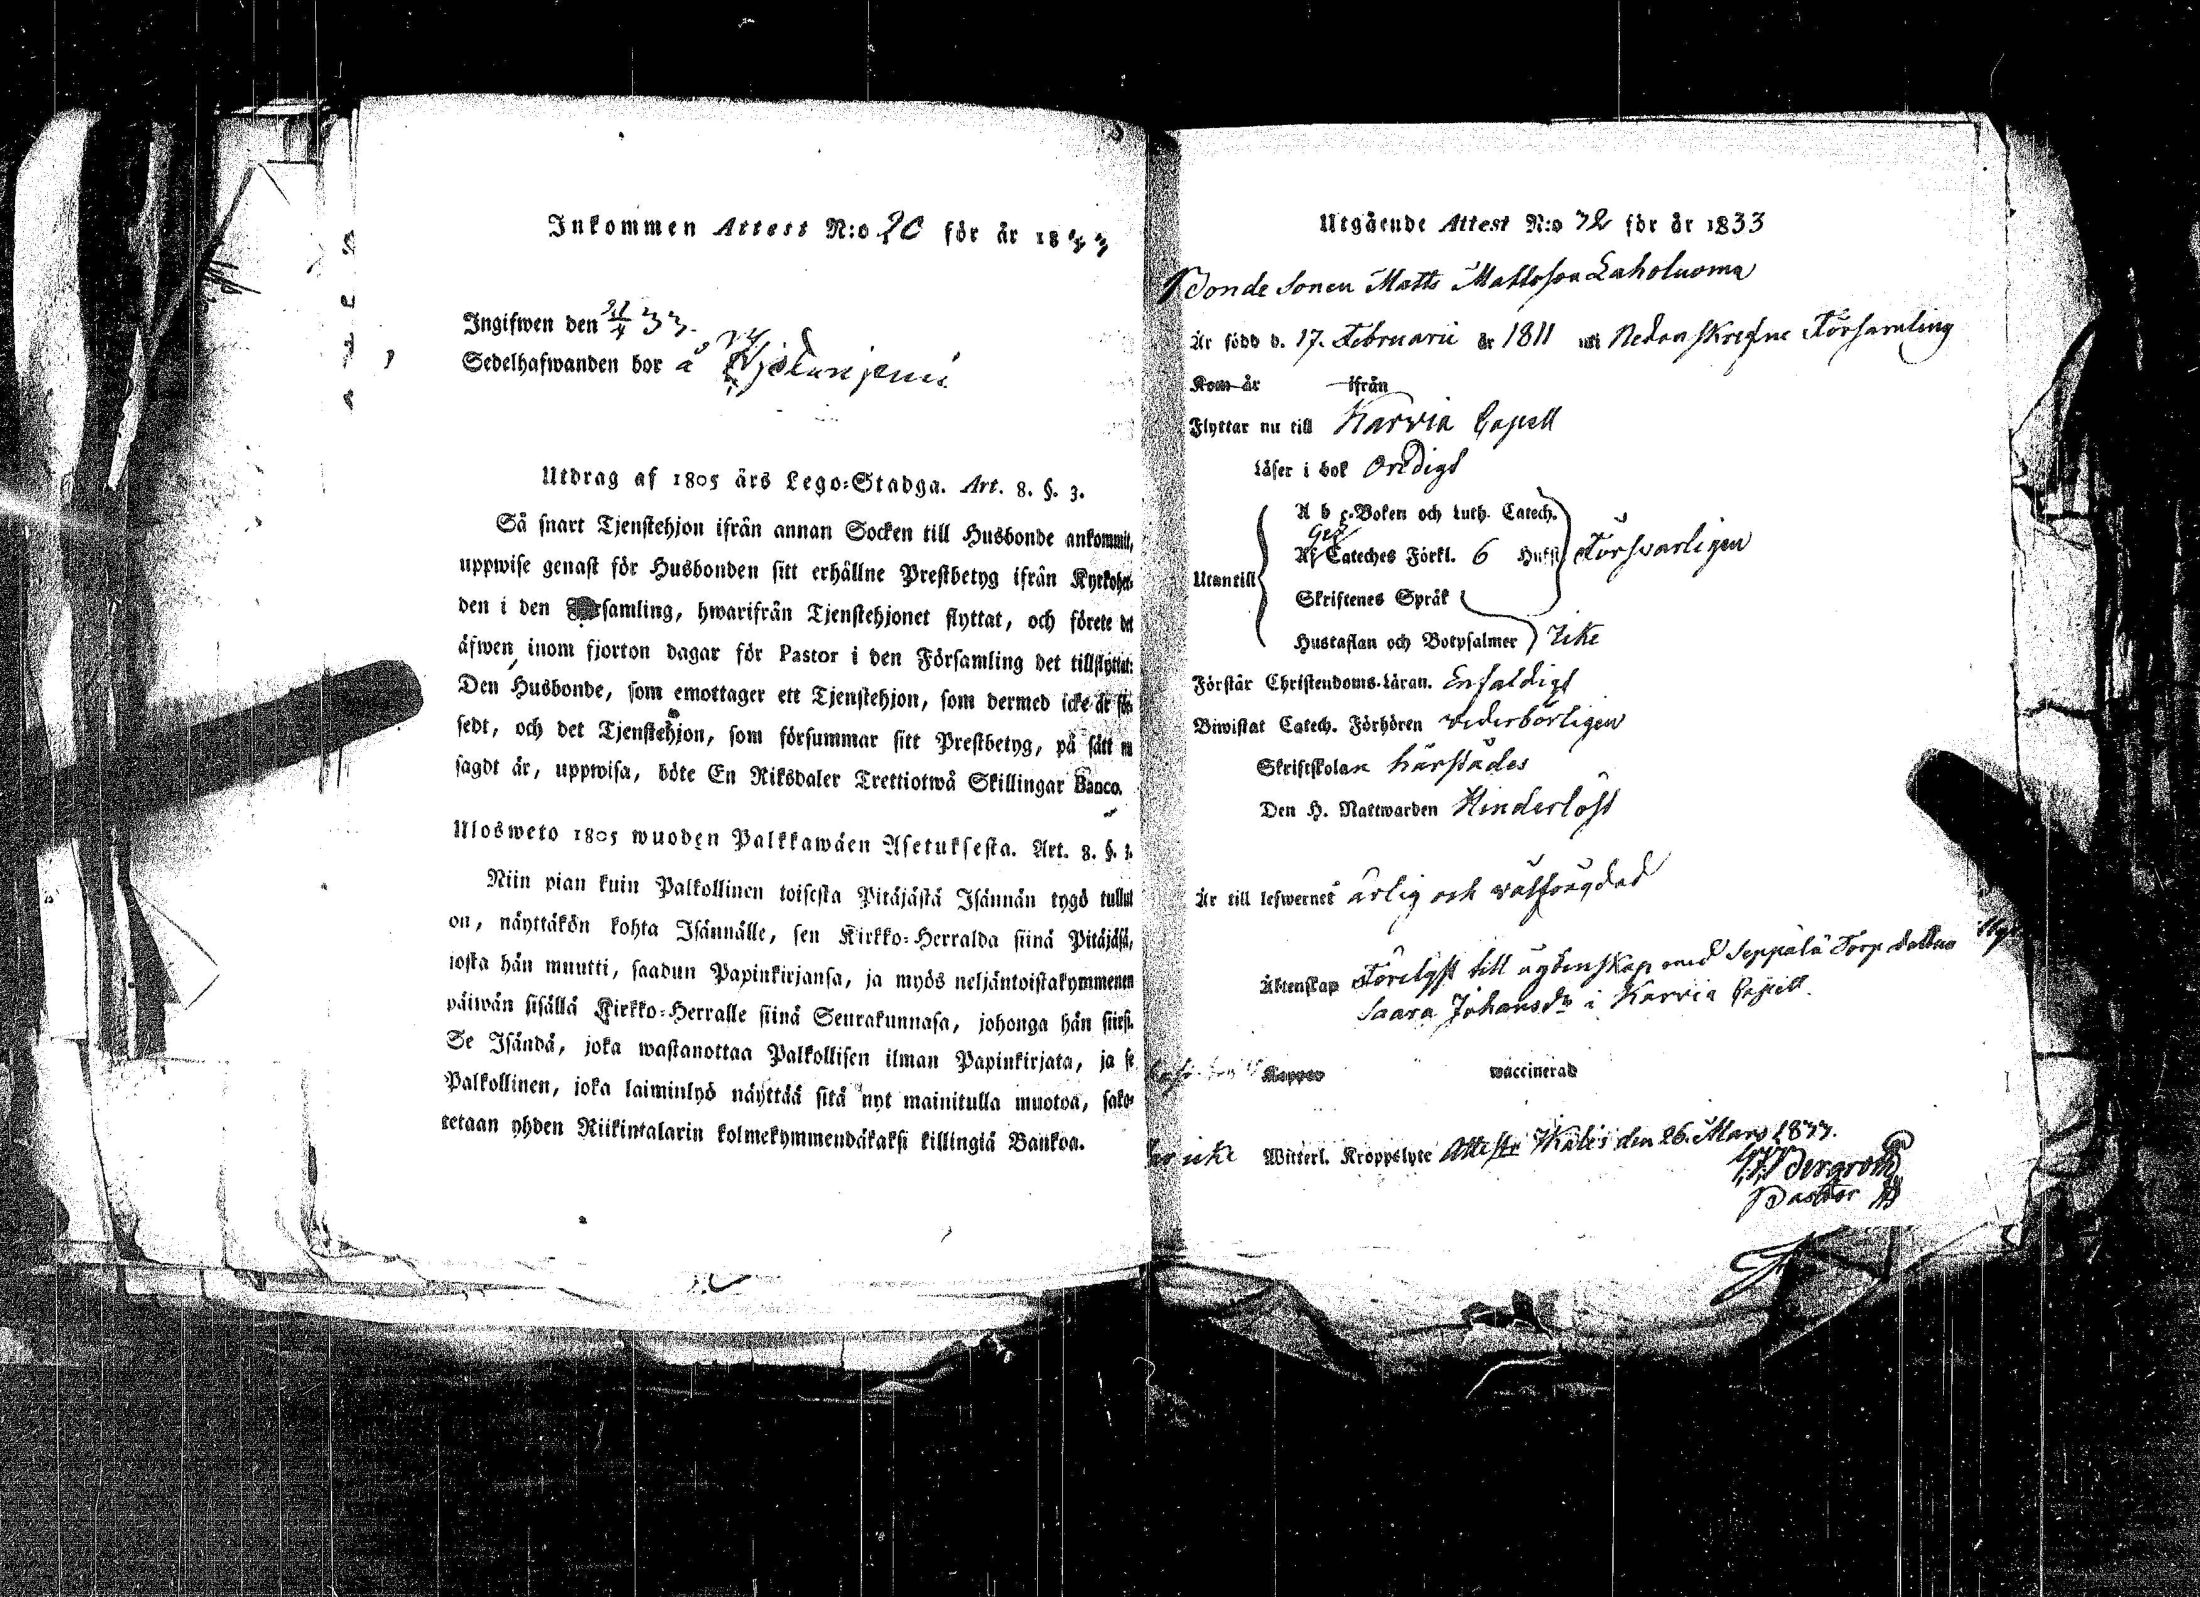 Inkommen Attest N:o 20 för år 1833
Ingifwen den 21/4 33.
Sedelhafwanden bor å
Utdrag af 1805 års Lego-Stadga. Art. 8. §. 3.
Så snart Tjenstehjon ifrån annan Socken till Husbonde ankommit,
uppwise genast för Husbonden sitt erhållne Prestbetyg ifrån Kyrkoher-
den i den Församling, hwarifrån Tjenstehjonet flyttat, och förete det
äfwen inom fjorton dagar för Pastor i den Församling det tillflyttat:
Den Husbonde, som emottager ett Tjenstehjon, som dermed icke är för-
sedt, och det Tjenstehjon, som försummar sitt Prestbetyg, på sätt nu
sagdt är, uppwisa, böte En Riksdaler Trettiotwå Skillingar Banco.
Ulosweto 1805 wuoden Palkkawäen Asetuksesta. Art. 8. §. 3.
Niin pian kuin Palkollinen toisesta Pitäjästä Isännän tygö tullut
on, näyttäkön kohta Isännälle, sen Kirkko-Herralda siinä Pitäjäsä,
josta hän muutti, saadun Papinkirjansa, ja myös neljäntoistakymmenen
päiwän sisällä Kirkko-Herralle siinä Seurakunnasa, johonga hän siirsi.
Se Isändä, joka wastanottaa Palkollisen ilman Papinkirjata, ja se
Palkollinen, joka laiminlyö näyttää sitä nyt mainitulla muotoa, sako-
tetaan yhden Riikintalarin kolmekymmendäkaksi killingiä Bankoa.
Utgående Attest N:o 72 för år 1833
Bonde Sonen Matts Mattsson Laholuoma
Är född d. 17. Februarii år 1811 uti Nedanskrefne Församling
Kom år ifrån
Flyttar nu till Karvia Capell
Läser i bok Ordigt
A b c-Boken och Luth. Catech.
Af Cateches Förkl. 6 Hufst. Försvarligen
Utantill
Skriftenes Språk
Hustaflan och Botpsalmer Icke
Förstår Christendoms-Läran. Enfaldigt
Biwistat Catech. Förhören vederbörligen
Skriftskolan härstädes
Den H. Nattwarden Hinderlöst
Är till lefwernet ärlig och välfrägdad
Äktenskap Förelyst till ägtenskap med Seppälä Torp dottren
Saara Johansdr i Karvia Capell.
Koppor waccinerad
har icke Witterl. Kroppslyte Attestr den 26. Mars 1833.
Bergroth
Pastor